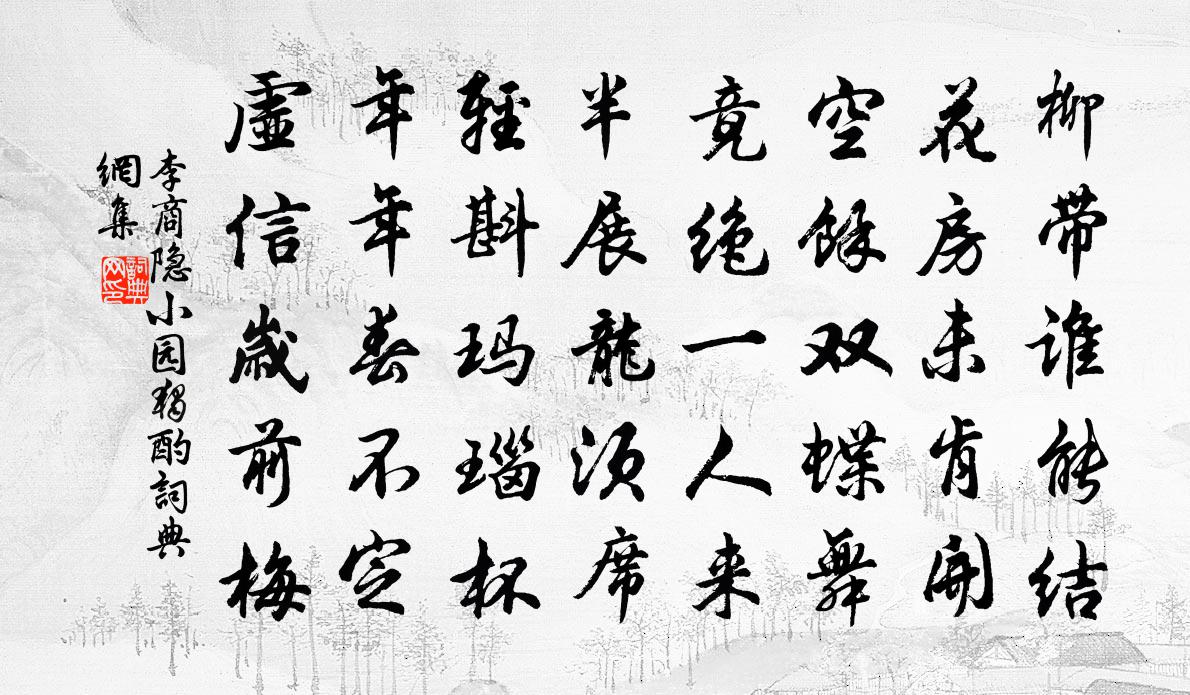 柳带谁能结
花房未肯開
空餘双蝶舞
竟绝一人来
半展龍须席
輕斟玛瑙杯
年年春不定
虛信歲前梅
李商隐小园独酌詞典
網集
詞典
网印